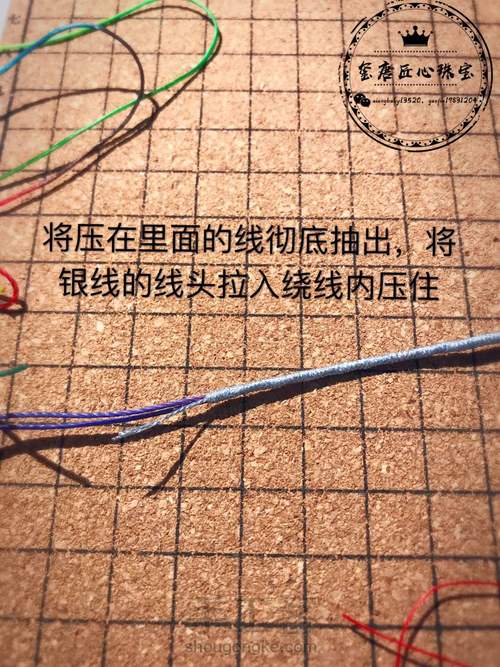 玺唐匠心珠宝
将压在里面的线彻底抽出，将
银线的线头拉入绕线内压住
shougongke.com